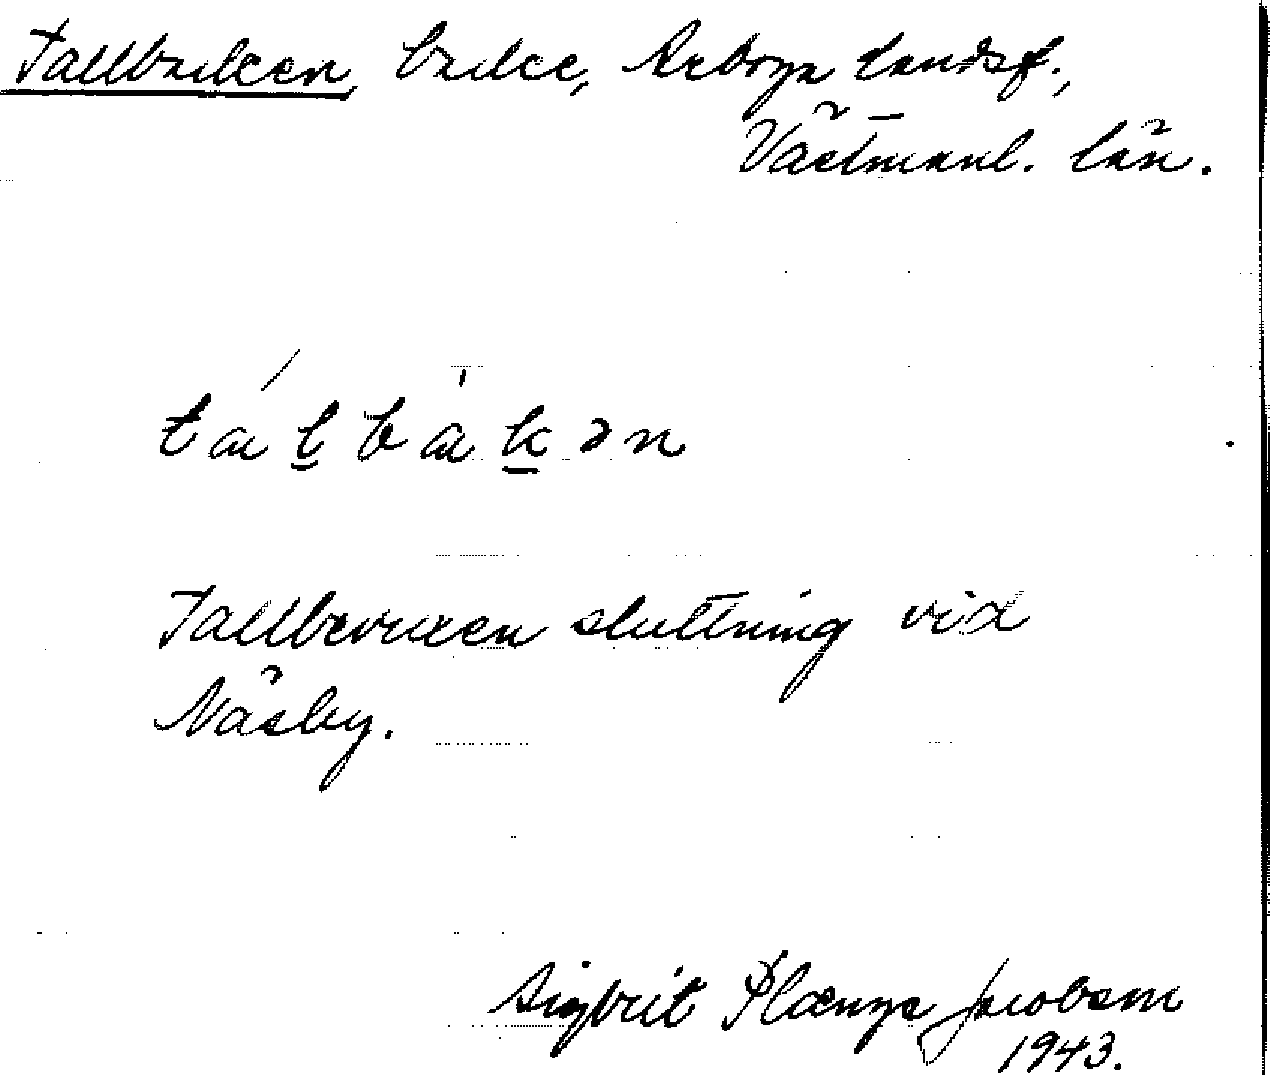 Tallbacken, backe, Arboga landsf.,
Västmanl. län.
tálbàkən
Tallbevuxen sluttning vid
Näsby.
Sigbrit Plænge Jacobson
1943.